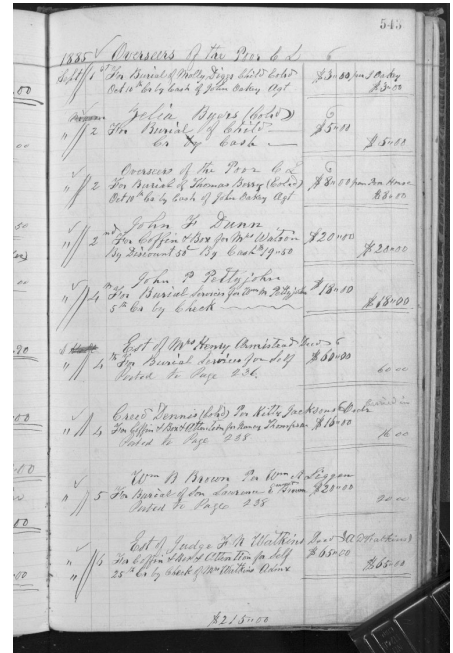 543
1885 Overseers of the Poor C L
Sept 1st For Burial of Molly Diggs Child Cold $3.00 John Oakey
Oct 10th Cr by Cash of John Oakey Agt $3.00
Zelia Byers (Cold)
" 2 For Burial of Child $5.00
Cr by Cash $5.00
Overseers of the Poor C L
" 2 For Burial of Thomas Berry (Cold) $8.00 from Poor House
Oct 10th Cr by Cash of John Oakey Agt $8.00
John F Dunn
" 2nd For Coffin & Box for Mrs Watson $20.00
By Discount 50 By Cash 19.50 $20.00
John P Pettyjohn
" 4th For Burial Services for Wm M Pettyjohn $18.00
5th Cr by Check $18.00
Est of Mrs Henry Armistead Decd
" 4th For Burial Services for Self $60.00
Posted to Page 236 60.00
Creed Dennis (Cold) Per Kitty Jackson
" 4 For Coffin & Box & Attention for Nancy Thompson $16.00
Posted to Page 238 16.00
Wm B Brown Per Wm A Liggan
" 5 For Burial of Son Lawrence E Brown $20.00
Posted to Page 238 20.00
Est of Judge F N Watkins Decd
" 6 For Coffin & Box & Attention for Self $65.00
" 25th Cr by Check of Mrs Watkins Admx $65.00
$215.00